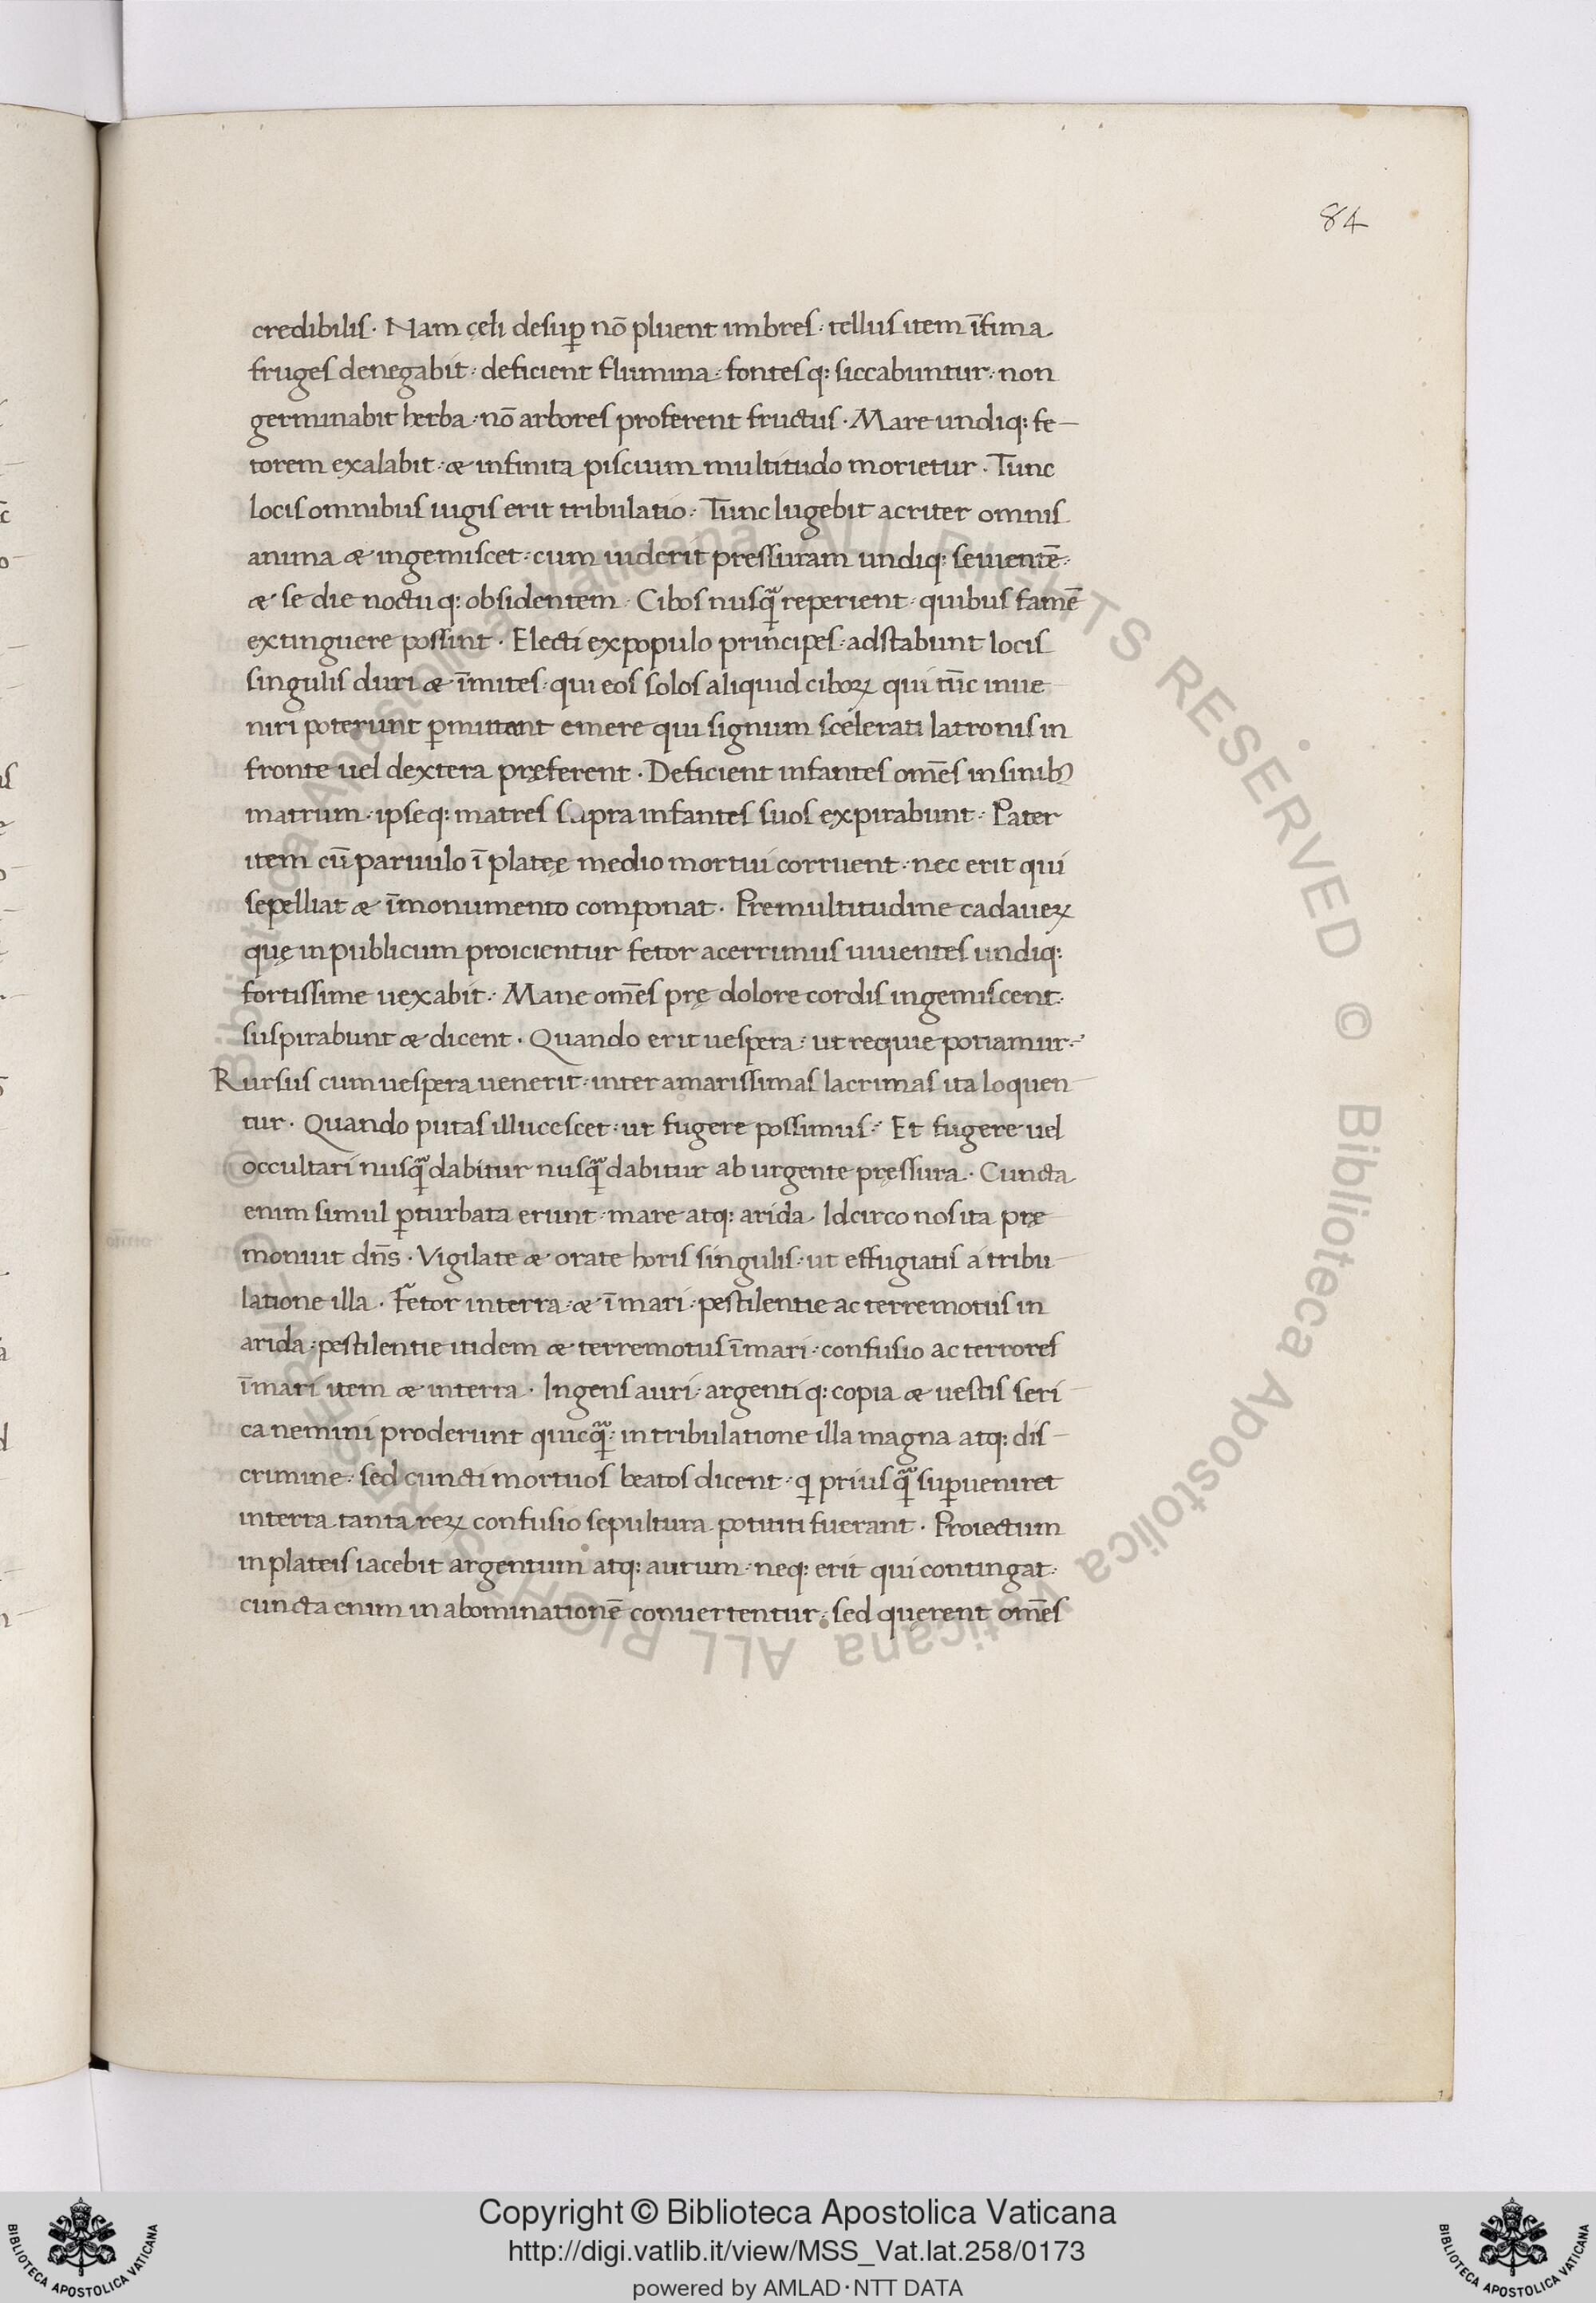 84
credibilis · Nam cęli desup̱ nō pluent imbres : tellus item īfima
fruges denegabit : deficient flumina : fontesq; siccabuntur : non
germinabit herba : nō arbores proferent fructus · Mare undiq; fe—
torem exalabit : & infinita piscium multitudo morietur · Tunc
locis omnibus iugis erit tribulatio : Tunc lugebit acriter omnis
anima & ingemiscet : cum uiderit pressuram undiq; seuientē :
& se die noctuq; obsidentem · Cibos nusꝗᷓ reperient : quibus famē
extinguere possint · Electi ex populo principes : adstabunt locis
singulis duri & īmites : qui eos solos aliquid ciboꝝ qui tūc inue
niri poterunt ꝑmittant emere qui signum scelerati latronis in
fronte uel dextera pręferent · Deficient infantes om̄es in sinibꝰ
matrum · ipseq; matres supra infantes suos expirabunt : Pater
item cū paruulo ī platęę medio mortui corruent : nec erit qui
sepelliat & ī monumento componat · Pre multitudine cadaueꝝ
quę in publicum proicientur fetor acerrimus uiuentes undiq;
fortissime uexabit : Mane om̄es prę dolore cordis ingemiscent :
suspirabunt & dicent · Quando erit uespera : ut requie potiamur :
Rursus cum uespera uenerit : inter amarissimas lacrimas ita loquen—
tur · Quando putas illucescet : ut fugere possimus : Et fugere uel
occultari nusꝗᷓ dabitur nusꝗᷓ dabitur ab urgente pręssura · Cuncta
enim simul ꝑturbata erunt : mare atq; arida · Idcirco nos ita prę
monuit dn̄s · Vigilate & orate horis singulis : ut effugiatis a tribu—
latione illa · Fetor in terra : & ī mari : pestilentie ac terremotus in
arida : pestilentie itidem & terremotus ī mari : confusio ac terrores
ī mari item & in terra · Ingens auri : argentiq; copia & uestis seri—
ca nemini proderunt quicꝗᷓ : in tribulatione illa magna atq; dis—
crimine : sed cuncti mortuos beatos dicent : ꝗ priusꝗᷓ suꝑueniret
in terra tanta reꝝ confusio sepultura potititi fuerant · Proiectum
in plateis iacebit argentum atq; aurum : neq; erit qui contingat :
cuncta enim in abominationē conuertentur : sed quęrent om̄es
© Biblioteca Apostolica Vaticana ALL RIGHTS RESERVED © Biblioteca Apostolica Vaticana ALL RIGHTS RESERVED
Copyright © Biblioteca Apostolica Vaticana
http://digi.vatlib.it/view/MSS_Vat.lat.258/0173
powered by AMLAD·NTT DATA
BIBLIOTECA APOSTOLICA VATICANA
BIBLIOTECA APOSTOLICA VATICANA